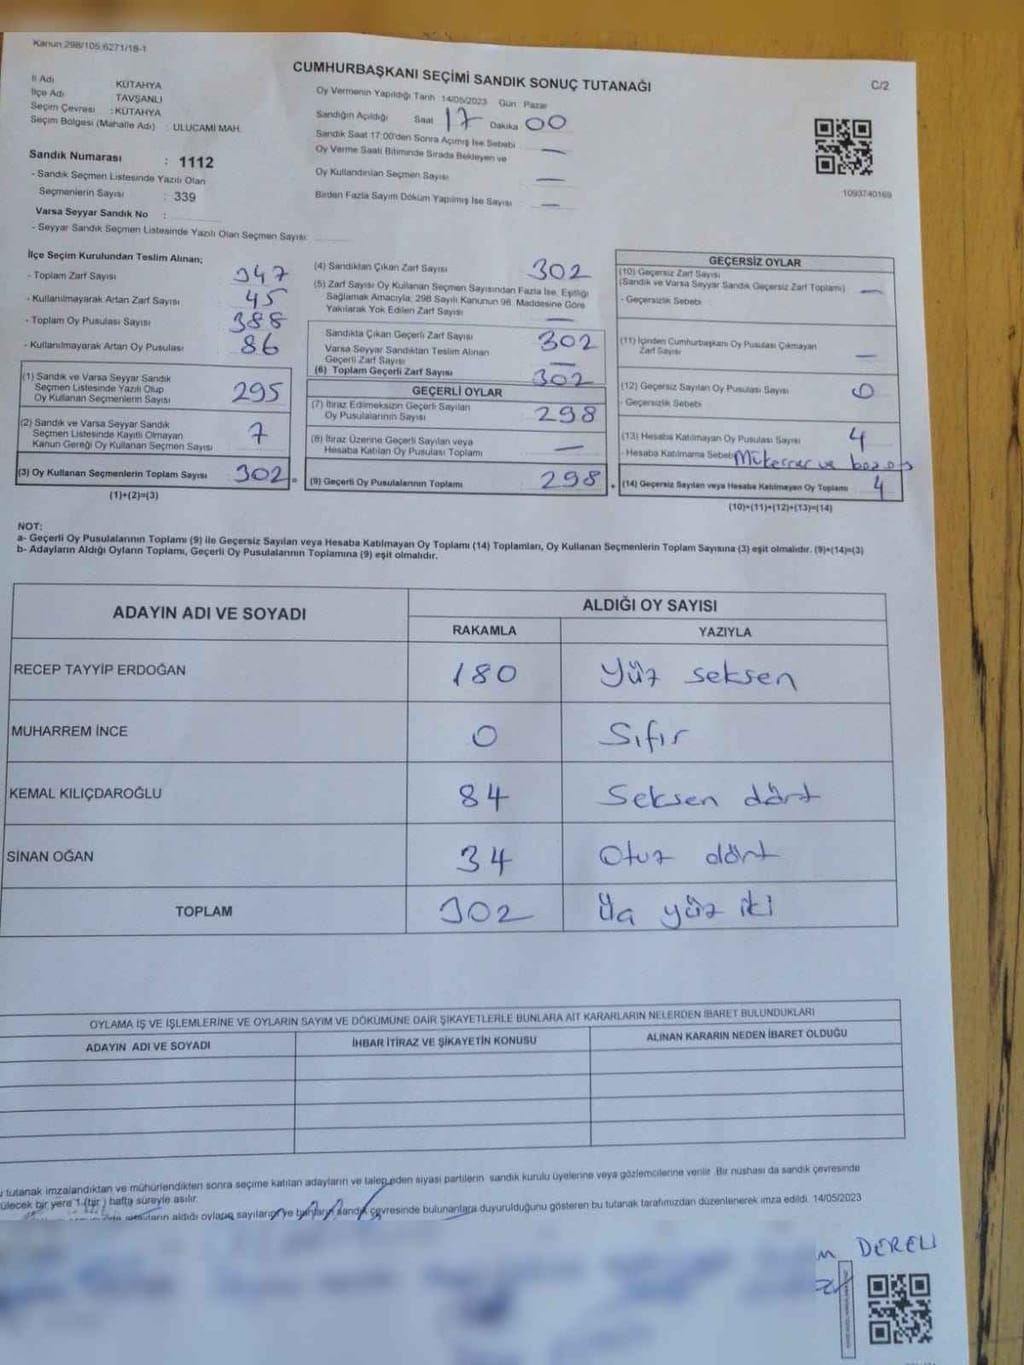 Kanun:298/105,6271/18-1
CUMHURBAŞKANI SEÇİMİ SANDIK SONUÇ TUTANAĞI
C/2
İl Adı KÜTAHYA
İlçe Adı TAVŞANLI
Seçim Çevresi :KÜTAHYA
Seçim Bölgesi (Mahalle Adı) : ULUCAMİ MAH.
Sandık Numarası : 1112
- Sandık Seçmen Listesinde Yazılı Olan
Seçmenlerin Sayısı : 339
Varsa Seyyar Sandık No :
- Seyyar Sandık Seçmen Listesinde Yazılı Olan Seçmen Sayısı:
Oy Vermenin Yapıldığı Tarih 14/05/2023 Gün Pazar
Sandığın Açıldığı Saat 17 Dakika 00
Sandık Saat 17:00'den Sonra Açımış İse Sebebi —
Oy Verme Saati Bitiminde Sırada Bekleyen ve
Oy Kullandırılan Seçmen Sayısı —
Birden Fazla Sayım Döküm Yapılmış İse Sayısı —
1093740169
İlçe Seçim Kurulundan Teslim Alınan;
- Toplam Zarf Sayısı 347
- Kullanılmayarak Artan Zarf Sayısı 45
- Toplam Oy Pusulası Sayısı 388
- Kullanılmayarak Artan Oy Pusulası 86
(1) Sandık ve Varsa Seyyar Sandık
Seçmen Listesinde Yazılı Olup
Oy Kullanan Seçmenlerin Sayısı 295
(2) Sandık ve Varsa Seyyar Sandık
Seçmen Listesinde Kayıtlı Olmayan
Kanun Gereği Oy Kullanan Seçmen Sayısı 7
(3) Oy Kullanan Seçmenlerin Toplam Sayısı 302 =
(1)+(2)=(3)
(4) Sandıktan Çıkan Zarf Sayısı 302
(5) Zarf Sayısı Oy Kullanan Seçmen Sayısından Fazla İse, Eşitliği
Sağlamak Amacıyla, 298 Sayılı Kanunun 98. Maddesine Göre
Yakılarak Yok Edilen Zarf Sayısı —
Sandıkta Çıkan Geçerli Zarf Sayısı 302
Varsa Seyyar Sandıktan Teslim Alınan
Geçerli Zarf Sayısı —
(6) Toplam Geçerli Zarf Sayısı 302
GEÇERLİ OYLAR
(7) İtiraz Edilmeksizin Geçerli Sayılan
Oy Pusulalarının Sayısı 298
(8) İtiraz Üzerine Geçerli Sayılan veya
Hesaba Katılan Oy Pusulası Toplamı —
(9) Geçerli Oy Pusulalarının Toplamı 298 +
GEÇERSİZ OYLAR
(10) Geçersiz Zarf Sayısı
(Sandık ve Varsa Seyyar Sandık Geçersiz Zarf Toplamı) —
- Geçersizlik Sebebi
(11) İçinden Cumhurbaşkanı Oy Pusulası Çıkmayan
Zarf Sayısı —
(12) Geçersiz Sayılan Oy Pusulası Sayısı 0
- Geçersizlik Sebebi
(13) Hesaba Katılmayan Oy Pusulası Sayısı 4
- Hesaba Katılmama Sebebi Mükerrer ve boş oy
(14) Geçersiz Sayılan veya Hesaba Katılmayan Oy Toplamı 4
(10)+(11)+(12)+(13)=(14)
NOT:
a- Geçerli Oy Pusulalarının Toplamı (9) ile Geçersiz Sayılan veya Hesaba Katılmayan Oy Toplamı (14) Toplamları, Oy Kullanan Seçmenlerin Toplam Sayısına (3) eşit olmalıdır. (9)+(14)=(3)
b- Adayların Aldığı Oyların Toplamı, Geçerli Oy Pusulalarının Toplamına (9) eşit olmalıdır.
ADAYIN ADI VE SOYADI ALDIĞI OY SAYISI
RAKAMLA YAZIYLA
RECEP TAYYİP ERDOĞAN 180 Yüz seksen
MUHARREM İNCE 0 Sıfır
KEMAL KILIÇDAROĞLU 84 Seksen dört
SİNAN OĞAN 34 Otuz dört
TOPLAM 302 Üç yüz iki
OYLAMA İŞ VE İŞLEMLERİNE VE OYLARIN SAYIM VE DÖKÜMÜNE DAİR ŞİKAYETLERLE BUNLARA AİT KARARLARIN NELERDEN İBARET BULUNDUKLARI
ADAYIN ADI VE SOYADI İHBAR İTİRAZ VE ŞİKAYETİN KONUSU ALINAN KARARIN NEDEN İBARET OLDUĞU
tutanak imzalandıktan ve mühürlendikten sonra seçime katılan adayların ve talep eden siyasi partilerin sandık kurulu üyelerine veya gözlemcilerine verilir. Bir nüshası da sandık çevresinde
bir yere 1 (bir) hafta süreyle asılır.
aldığı oyların sayılarını ve bunların sandık çevresinde bulunanlara duyurulduğunu gösteren bu tutanak tarafımızdan düzenlenerek imza edildi. 14/05/2023
DERELİ